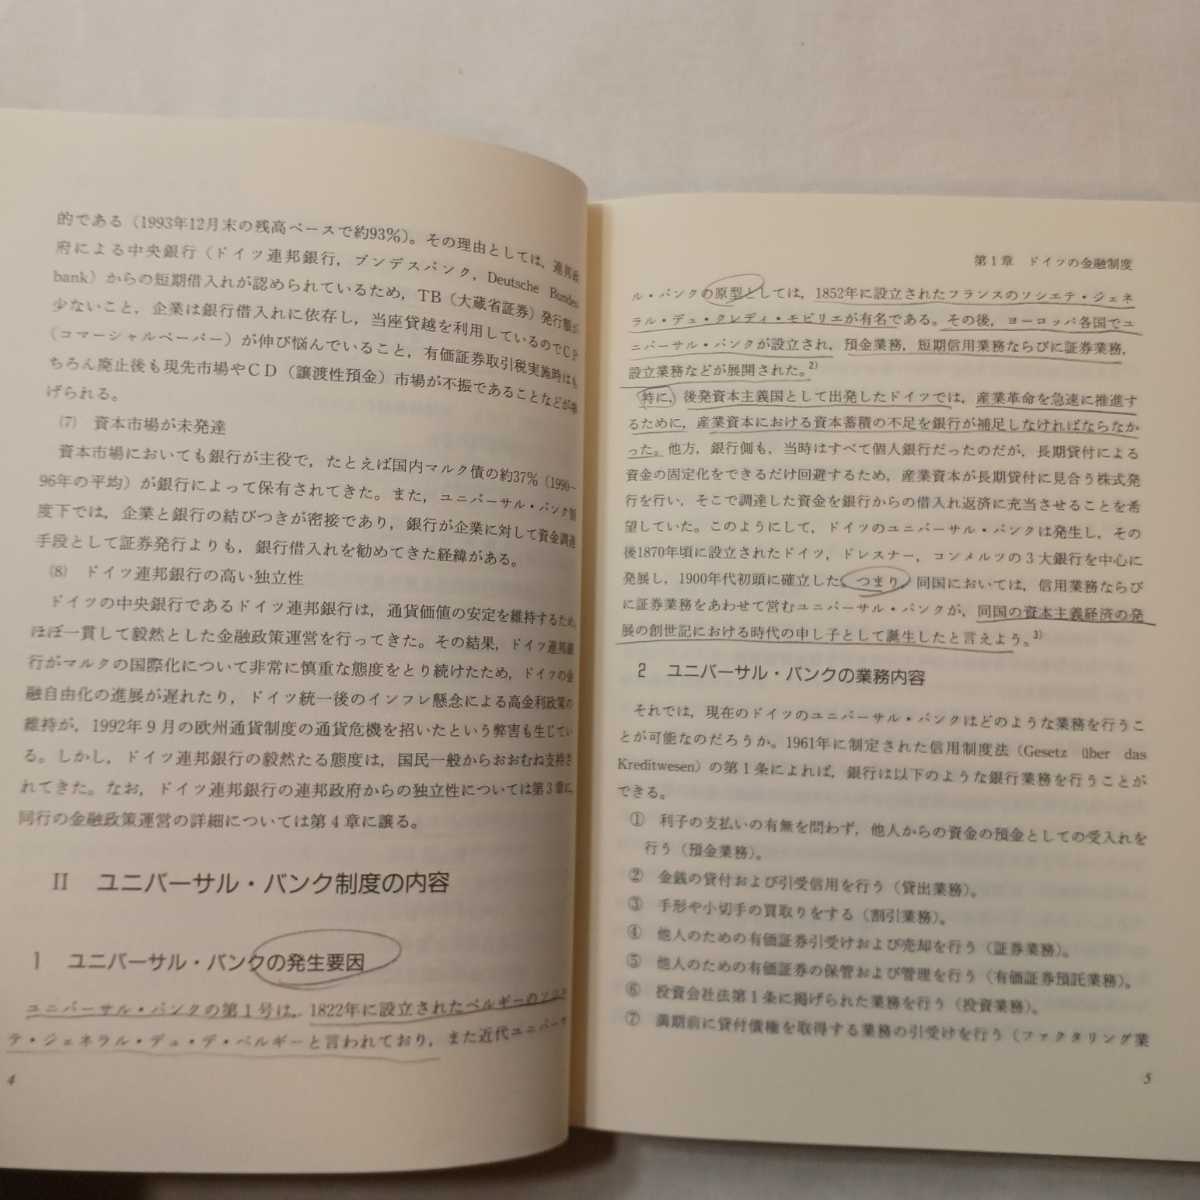 的である（1993年12月末の残高ベースで約93％）。その理由としては，連邦政
府による中央銀行（ドイツ連邦銀行，ブンデスバンク，Deutsche Bundes-
bank）からの短期借入れが認められているため，TB（大蔵省証券）発行額が
少ないこと，企業は銀行借入れに依存し，当座貸越を利用しているのでＣＰ
（コマーシャルペーパー）が伸び悩んでいること，有価証券取引税実施時はも
ちろん廃止後も現先市場やＣＤ（譲渡性預金）市場が不振であることなどが挙
げられる。
⑺　資本市場が未発達
資本市場においても銀行が主役で，たとえば国内マルク債の約37％（1990－
96年の平均）が銀行によって保有されてきた。また，ユニバーサル・バンク制
度下では，企業と銀行の結びつきが密接であり，銀行が企業に対して資金調達
手段として証券発行よりも，銀行借入れを勧めてきた経緯がある。
⑻　ドイツ連邦銀行の高い独立性
ドイツの中央銀行であるドイツ連邦銀行は，通貨価値の安定を維持するため，
ほぼ一貫して毅然とした金融政策運営を行ってきた。その結果，ドイツ連邦銀
行がマルクの国際化について非常に慎重な態度をとり続けたため，ドイツの金
融自由化の進展が遅れたり，ドイツ統一後のインフレ懸念による高金利政策の
維持が，1992年９月の欧州通貨制度の通貨危機を招いたという弊害も生じてい
る。しかし，ドイツ連邦銀行の毅然たる態度は，国民一般からおおむね支持さ
れてきた。なお，ドイツ連邦銀行の連邦政府からの独立性については第３章に，
同行の金融政策運営の詳細については第４章に譲る。
II　ユニバーサル・バンク制度の内容
1　ユニバーサル・バンクの発生要因
ユニバーサル・バンクの第１号は，1822年に設立されたベルギーのソシエ
テ・ジェネラル・デュ・デ・ベルギーと言われており，また近代ユニバーサ
4
第１章　ドイツの金融制度
ル・バンクの原型としては，1852年に設立されたフランスのソシエテ・ジェネ
ラル・デュ・クレディ・モビリエが有名である。その後，ヨーロッパ各国でユ
ニバーサル・バンクが設立され，預金業務，短期信用業務ならびに証券業務，
設立業務などが展開された。2)
特に，後発資本主義国として出発したドイツでは，産業革命を急速に推進す
るために，産業資本における資本蓄積の不足を銀行が補足しなければならなか
った。他方，銀行側も，当時はすべて個人銀行だったのだが，長期貸付による
資金の固定化をできるだけ回避するため，産業資本が長期貸付に見合う株式発
行を行い，そこで調達した資金を銀行からの借入れ返済に充当させることを希
望していた。このようにして，ドイツのユニバーサル・バンクは発生し，その
後1870年頃に設立されたドイツ，ドレスナー，コンメルツの３大銀行を中心に
発展し，1900年代初頭に確立した。つまり，同国においては，信用業務ならび
に証券業務をあわせて営むユニバーサル・バンクが，同国の資本主義経済の発
展の創世記における時代の申し子として誕生したと言えよう。3)
2　ユニバーサル・バンクの業務内容
それでは，現在のドイツのユニバーサル・バンクはどのような業務を行うこ
とが可能なのだろうか。1961年に制定された信用制度法（Gesetz über das
Kreditwesen）の第１条によれば，銀行は以下のような銀行業務を行うことが
できる。
①　利子の支払いの有無を問わず，他人からの資金の預金としての受入れを
行う（預金業務）。
②　金銭の貸付および引受信用を行う（貸出業務）。
③　手形や小切手の買取りをする（割引業務）。
④　他人のための有価証券引受けおよび売却を行う（証券業務）。
⑤　他人のための有価証券の保管および管理を行う（有価証券預託業務）。
⑥　投資会社法第１条に掲げられた業務を行う（投資業務）。
⑦　満期前に貸付債権を取得する業務の引受けを行う（ファクタリング業
5